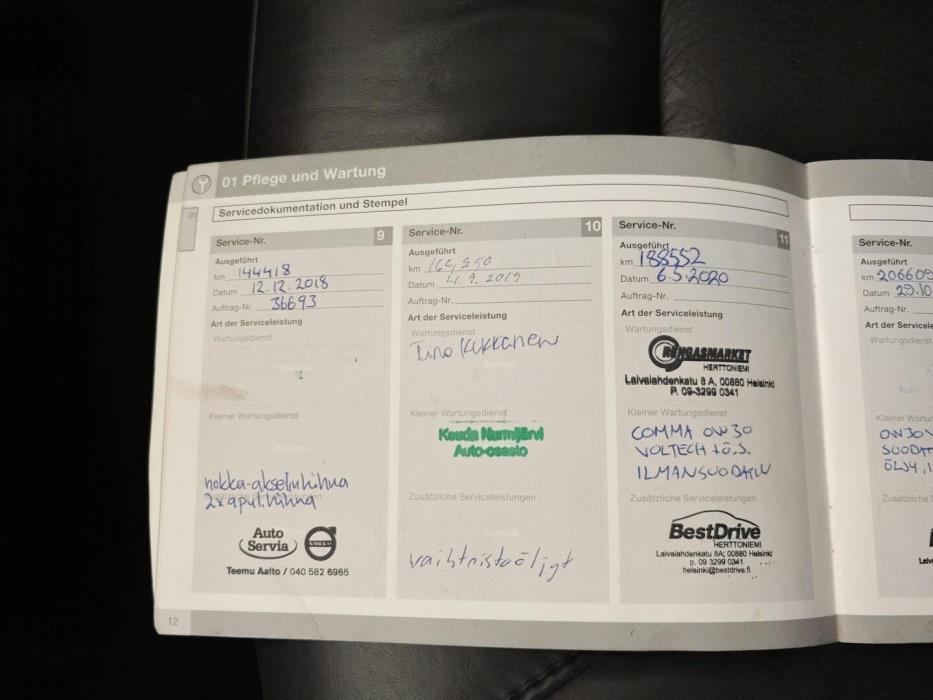 01 Pflege und Wartung
01
Servicedokumentation und Stempel
Service-Nr. 9
Ausgeführt
km 144418
Datum 12.12.2018
Auftrag-Nr. 36693
Art der Serviceleistung
Wartungsdienst
Kleiner Wartungsdienst
nokka-akselinhihna
2x apul.hihna
Auto
Servia
VOLVO
Teemu Aalto / 040 582 6965
Service-Nr. 10
Ausgeführt
km
Datum 4.9.2019
Auftrag-Nr.
Art der Serviceleistung
Wartungsdienst
Kleiner Wartungsdienst
Keuda Nurmijärvi
Auto-osasto
Zusätzliche Serviceleistungen
Service-Nr. 11
Ausgeführt
km 188552
Datum 6.5.2020
Auftrag-Nr.
Art der Serviceleistung
Wartungsdienst
RENGASMARKET
HERTTONIEMI
Laivalahdenkatu 8 A, 00880 Helsinki
P. 09-3299 0341
Kleiner Wartungsdienst
COMMA 0W30
VOLTECH +Ö.S.
ILMANSUODATIN
Zusätzliche Serviceleistungen
BestDrive
HERTTONIEMI
Laivalahdenkatu 8A; 00880 Helsinki
p. 09 3299 0341
helsinki@bestdrive.fi
Service-Nr.
Ausgeführt
km 206609
Datum 29.10
Auftrag-Nr.
Art der Servicele
Wartungsdienst
Kleiner Wartun
0W30
SUODAT
ÖLJY, I
Zusätzliche S
12